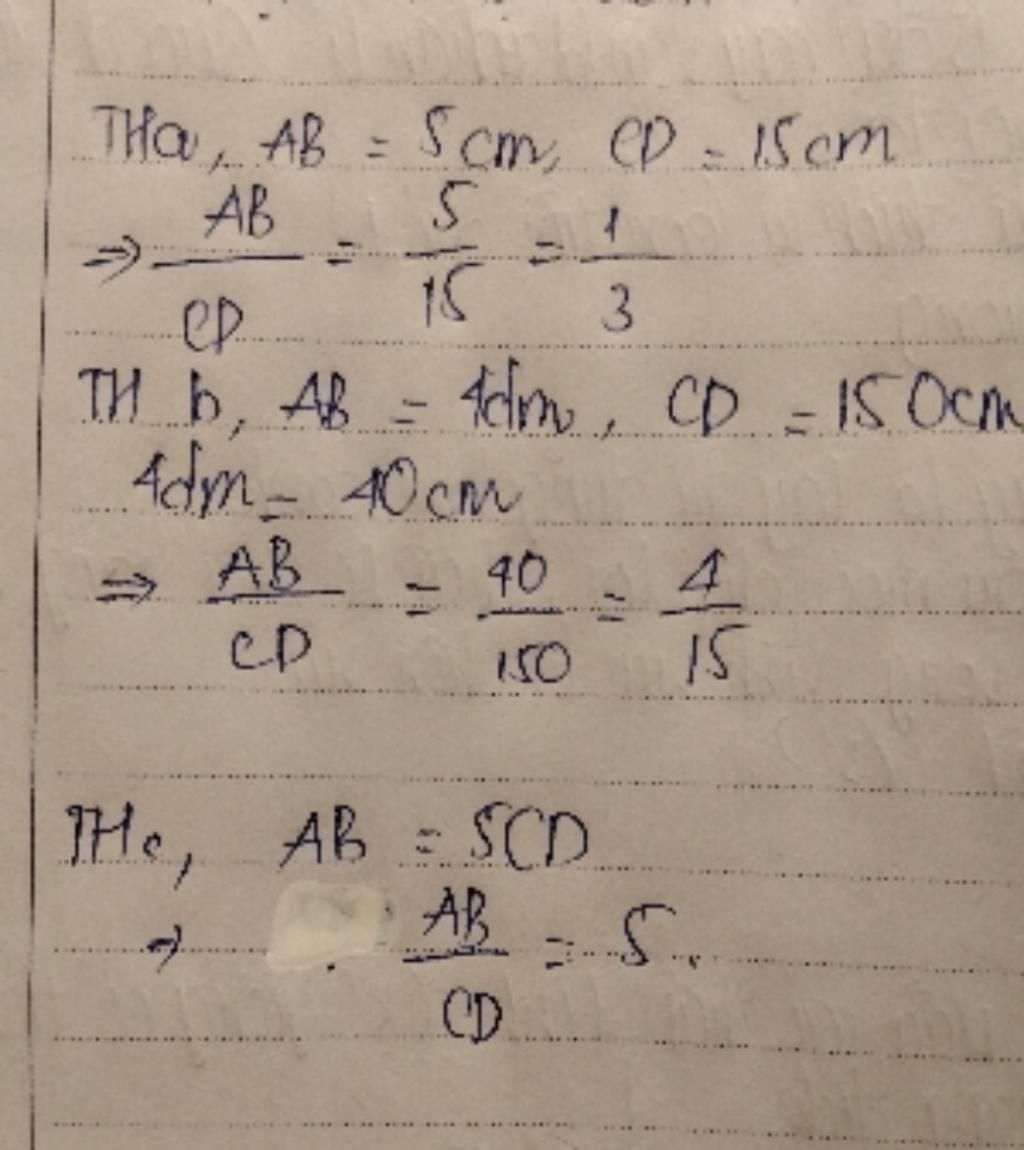 THa, AB = 5cm, CD = 15cm
⇒ AB/CD = 5/15 = 1/3
TH b, AB = 4dm, CD = 150cm
4dm = 40cm
⇒ AB/CD = 40/150 = 4/15
THc, AB = 5CD
→ AB/CD = 5.